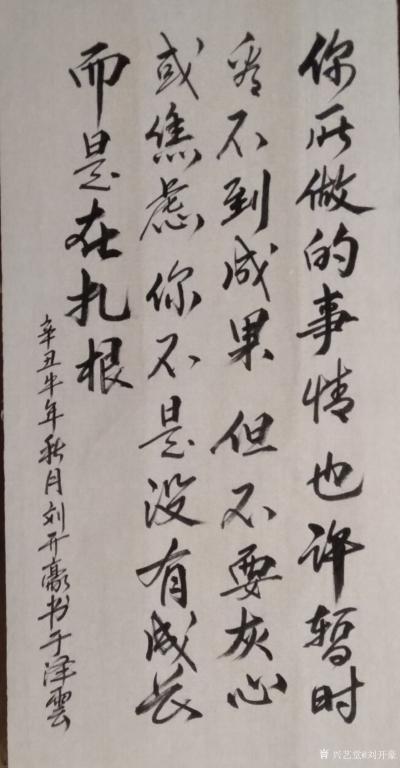 你所做的事情也许暂时
看不到成果但不要灰心
或焦虑你不是没有成长
而是在扎根
辛丑牛年秋月刘开豪书于泽雲
兴艺堂@刘开豪